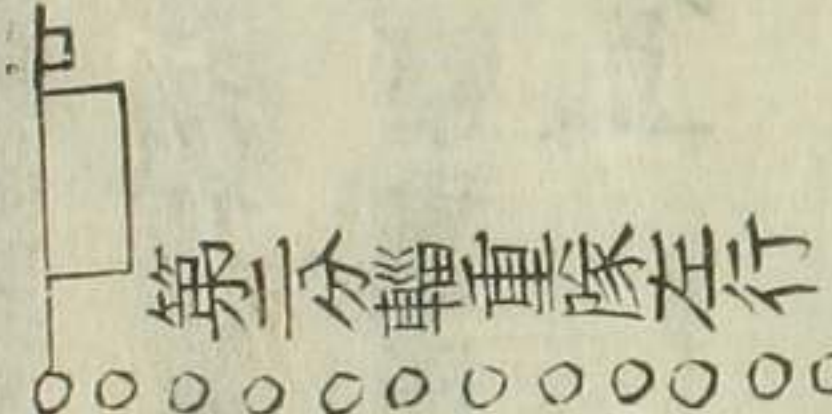 第二分輜重隊左行